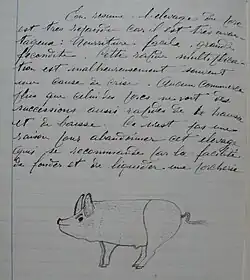 En résumé l'élevage du porc
est très répandu car il est très avan
tageux : Nourriture facile, grande
fécondité. Cette rapide multiplica
tion est malheureusement souvent
une cause de crise. Aucun commerce
plus que celui des porcs ne voit des
successions aussi rapides de la hausse
et de baisse. Ce n'est pas une
raison pour abandonner cet élevage
qui se recommande par la facilité
de fonder et de liquider une porcherie